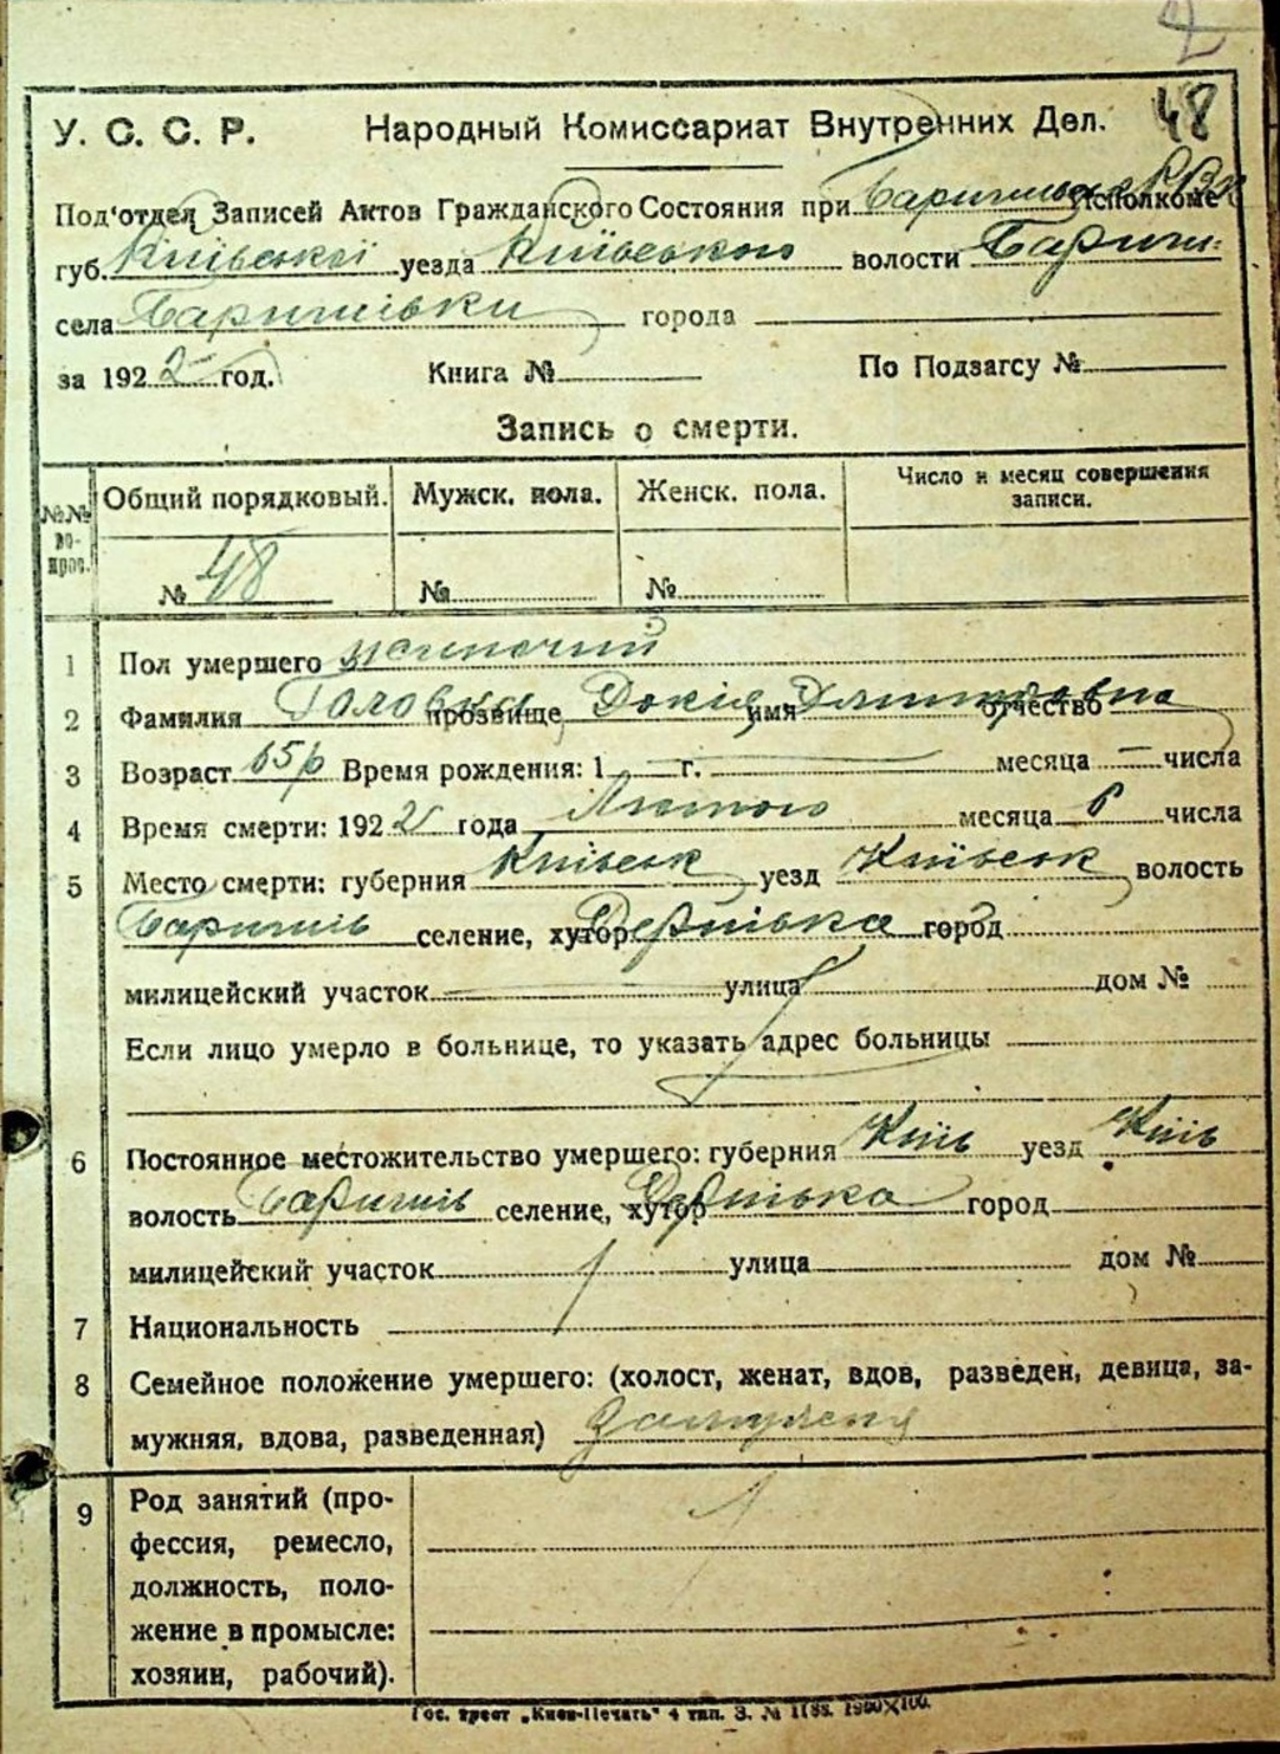 2
У. С. С. Р. Народный Комиссариат Внутренних Дел. 48
Под'отдел Записей Актов Гражданского Состояния при исполкоме
губ. Київської уезда Київського волости Бариш:
села Баришівки города
за 192 год. Книга № По Подзагсу №
Запись о смерти.
№№ во- прос. Общий порядковый. Мужск. пола. Женск. пола. Число и месяц совершения записи.
№ 48 № №
1 Пол умершего жіночий
2 Фамилия Головка прозвище Докія имя Дмитровна отчество
3 Возраст 65 р Время рождения: 1 г. месяца — числа
4 Время смерти: 192 года Лютого месяца 6 числа
5 Место смерти: губерния Київськ уезд Київськ волость
Баришів селение, хутор Дернівка город
милицейский участок улица дом №
Если лицо умерло в больнице, то указать адрес больницы
6 Постоянное местожительство умершего: губерния Київ уезд Київ
волость Баришів селение, хутор Дернівка город
милицейский участок улица дом №
7 Национальность
8 Семейное положение умершего: (холост, женат, вдов, разведен, девица, за-
мужняя, вдова, разведенная) Замужня
9 Род занятий (про-
фессия, ремесло,
должность, поло-
жение в промысле:
хозяин, рабочий).
Гос. трест „Киев-Печать“ 4 тип. З. № 1188. 1900×100.